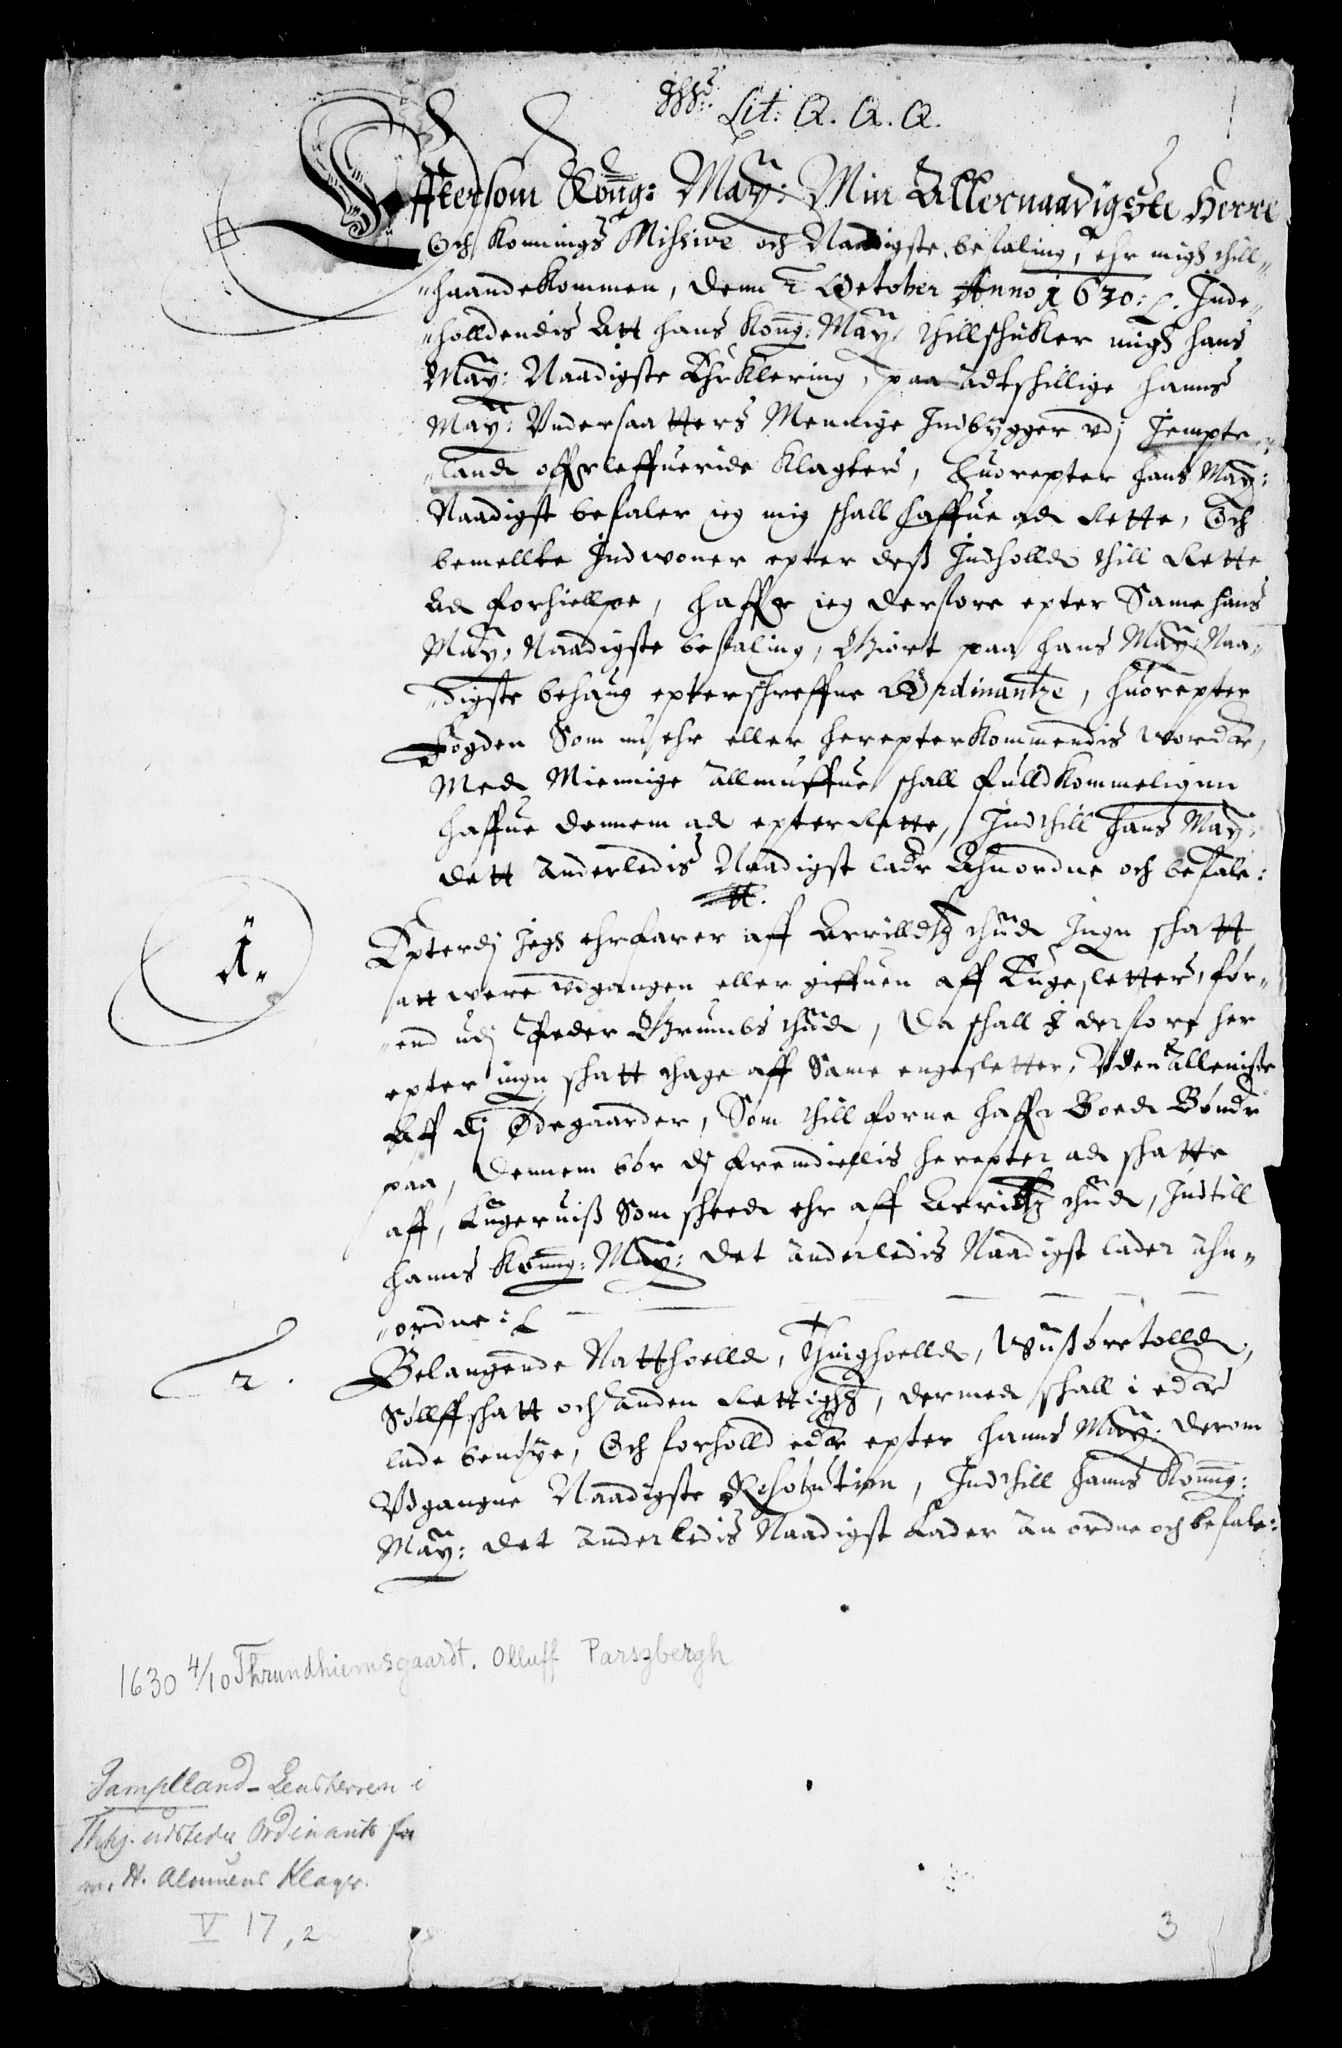 Lit: Q. Q. Q.
Efftersom Kong: May: Min Allernaadigste Herre
Och Konnings Missive och Naadigste befaling, ehr migh thill"
"haandekommen, denn 2 October Anno 1630: Inde"
"holldendis Att hans Kong: May: thillschicker migh hans
May: Naadigste Ehrklering, paa Adtschillige hanns
May: Undersaatters Mennige Indbygger udj Jempte"
"land offrleffueride Klagter, huorepter hans May:
Naadigst befaler ieg mig schall haffue ad Rette, Och
bemellte Indwoner epter dess Indholld thill Rette
ad forhiellpe, haffr ieg derfore epter Same hans
May: Naadigste befaling, Giort paa hans May: Naa"
"digste behaug epterschreffne Ordinantze, huorepter
Fogden Som nu ehr eller herepterkommendis worder,
Med Miennige Allmuffue schall fulldkommeligen
haffue dennem ad epterrette, Indthill hans May:
dett Anderledis Naadigst lader Ahnordne och befale:
1.
Epterdj Jegh ehrfarer aff Arrilldtz thiid Ingen schatt
att were udgangen eller giffuen aff Engesletter, for"
"end udj Peder Grumbs thiid, Da schall I derfore her
epter ingen schatt thage aff Same engesletter, Uden Alleniste
Aff dj Ødegaarder, Som thill forne haffr Boed Bønder
paa, dennem bør dj fremdielis herepter ad schatte
aff, Ligeruiss Som scheed ehr aff Arriltz thiid, Indtill
hanns Konng: May: det Anderledis Naadigst lader Ahn"
"ordne
2.
Belangende Natthoelld, Thinghoelld, Wissøretolld,
Søllffschatt och Anden Rettighed, dermed schall i eder
lade benøye, Och forholld eder epter hanns May: derom
Udgangne Naadigste Resolution, Indthill hanns Konng:
May: det Anderledis Naadigst Lader Anordne och befale:
1630 4/10 Thrundhiemsgaardt. Olluff Parszbergh
Jamptland - Lensherren i
Thhj. udstedte Ordinants for
m. H. Almuens Klager.
V 17, 2
3